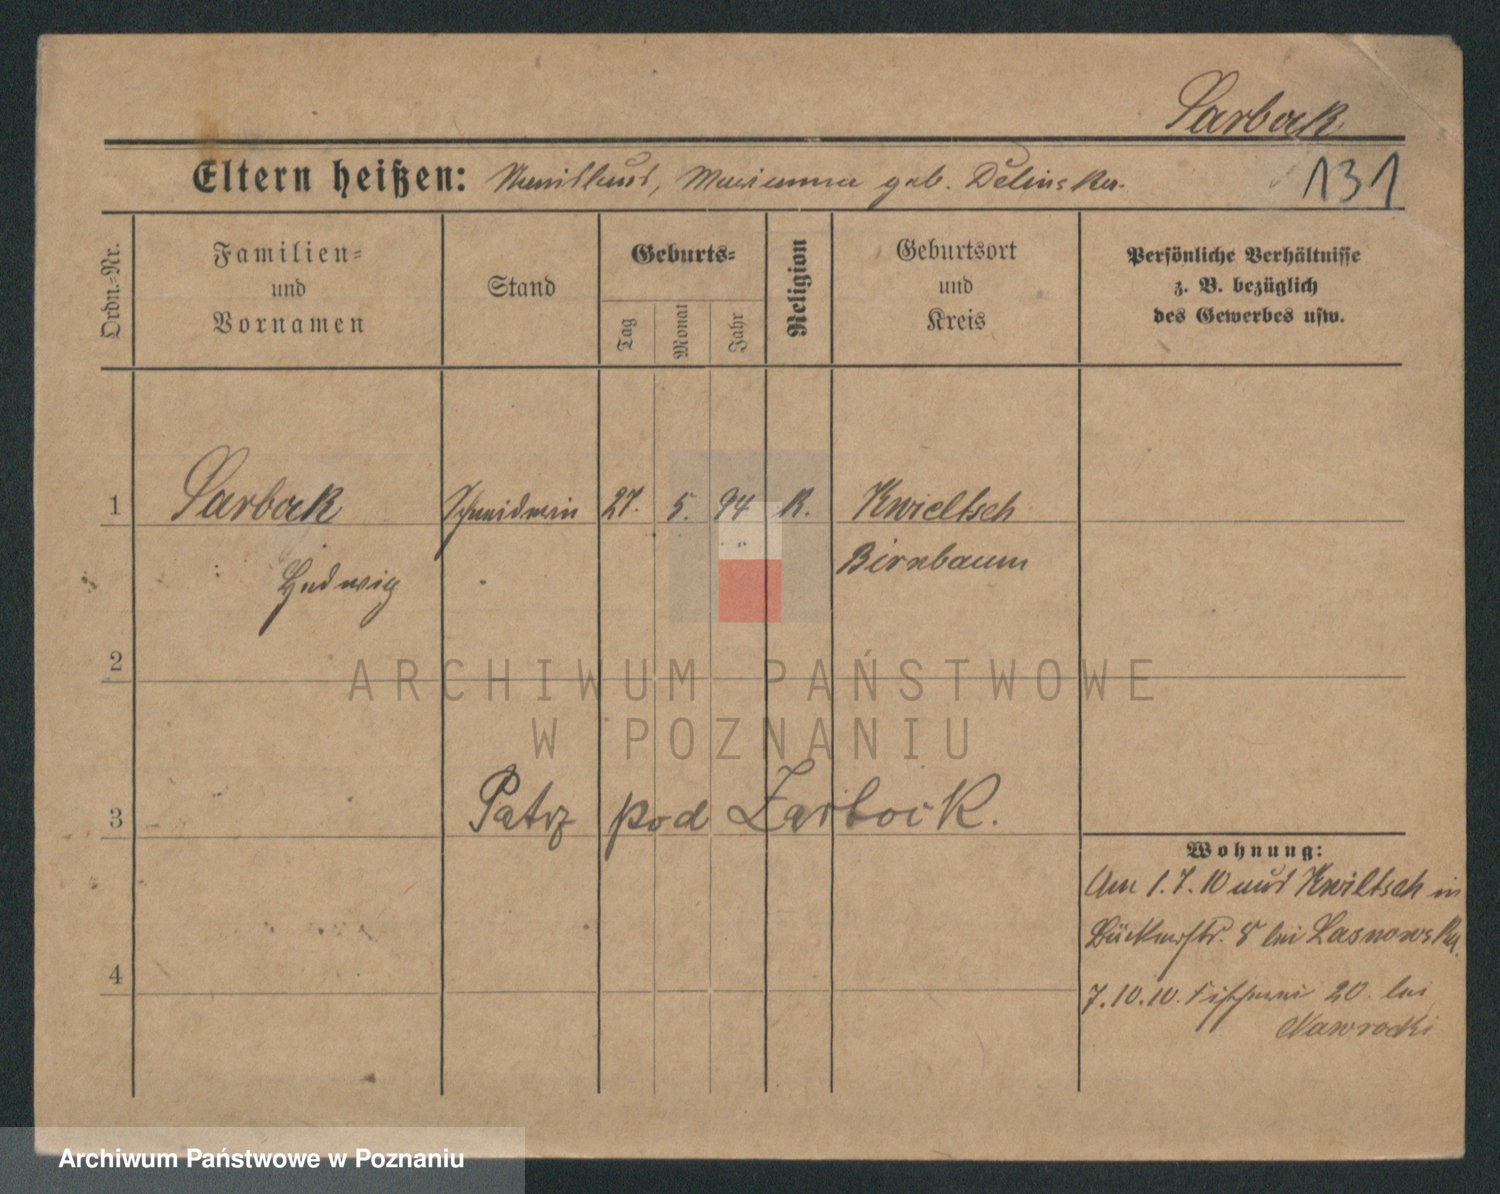 Sarbock
Eltern heißen: Stanislaus, Marianna geb. Delinska.
131
Ordn.-Nr.
Familien-
und
Vornamen
Stand
Geburts-
Tag
Monat
Jahr
Religion
Geburtsort
und
Kreis
Persönliche Verhältnisse
z. B. bezüglich
des Gewerbes usw.
1 Sarbock Schneiderin 27. 5. 94 K. Kwieltsch
Hedwig Birnbaum
2
ARCHIWUM PAŃSTWOWE
W POZNANIU
3 Patrz pod Zarbock.
Wohnung:
Am 1.7.10 aus Kwiltsch in
8 bei Lasnowska.
4
7.10.10. Fischerei 20. bei
Nawrocki
Archiwum Państwowe w Poznaniu